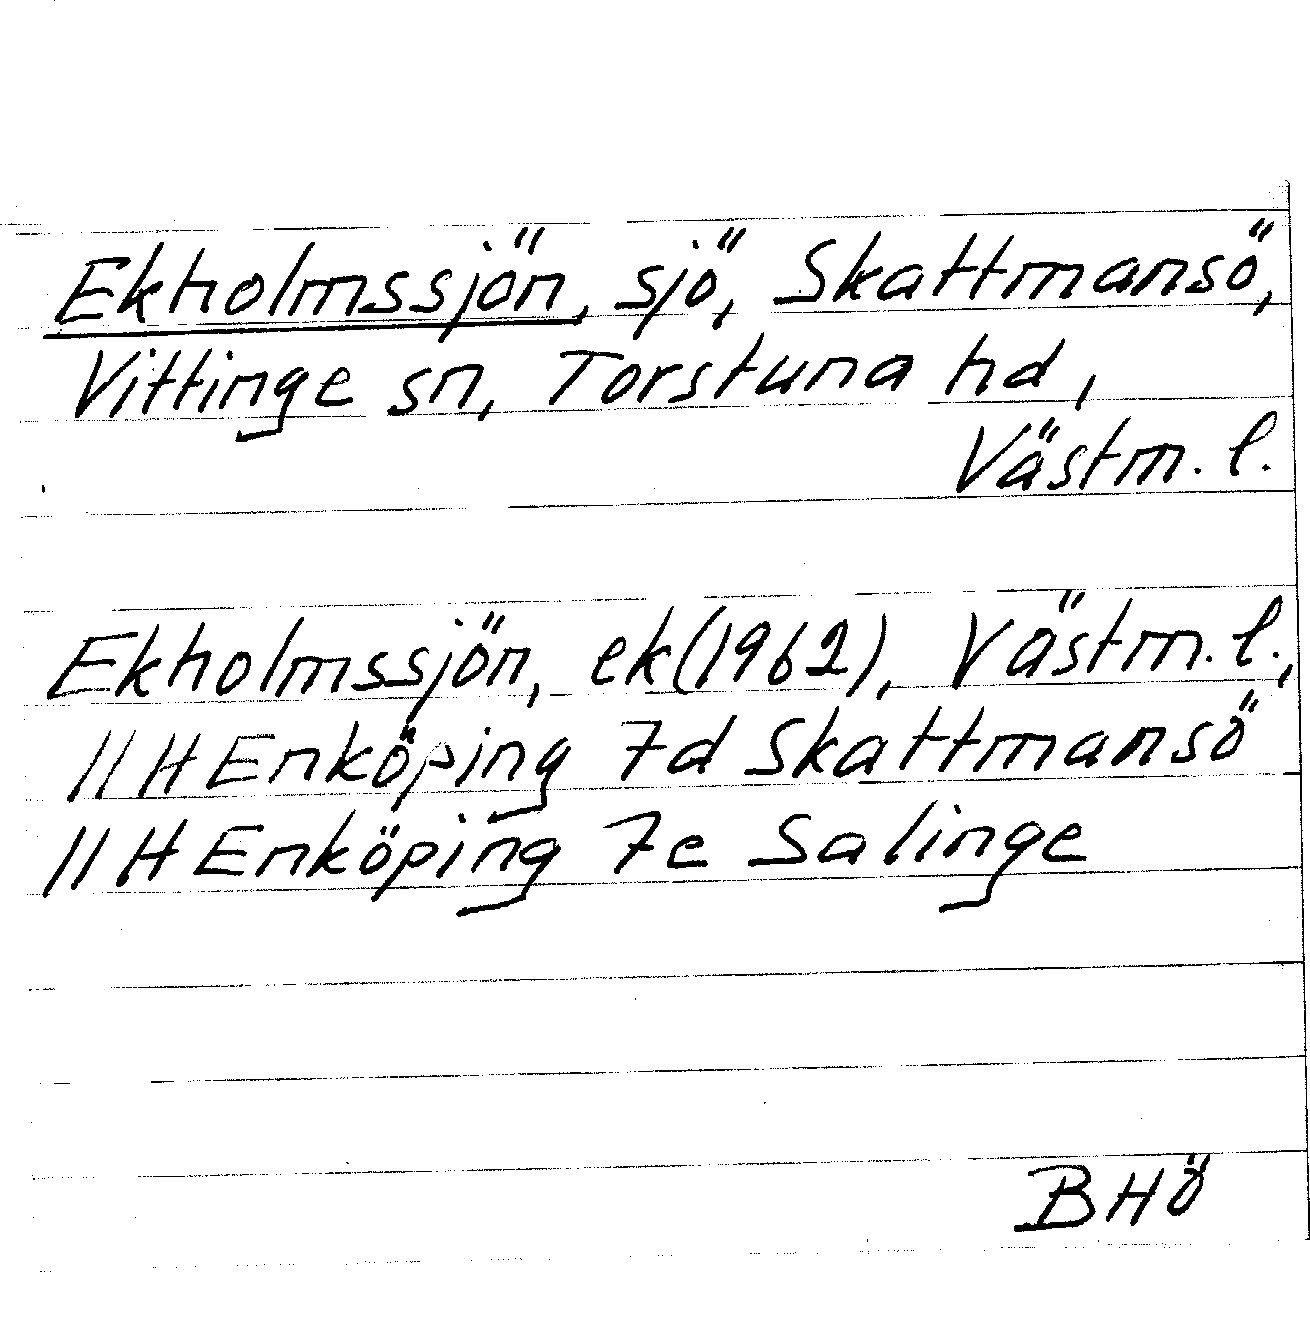 Ekholmssjön, sjö, Skattmansö,
Vittinge sn, Torstuna hd,
Västm. l.
Ekholmssjön, ek(1962), Västm. l.,
11 H Enköping 7d Skattmansö
11 H Enköping 7e Salinge
BHÖ